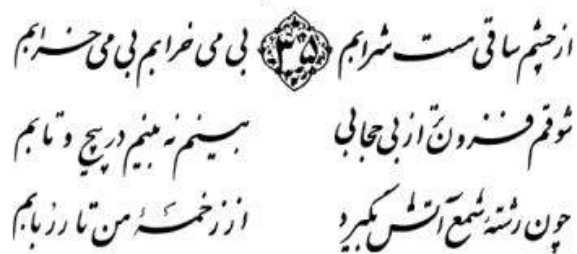 از چشم ساقی مست شرابم ۳۵ بی می خرابم بی می خرابم
شوقم فزون تر از بی حجابی بینم نه بینم در پیچ و تابم
چون رشتهٔ شمع آتش بگیرد از زخمهٔ من تار ربابم